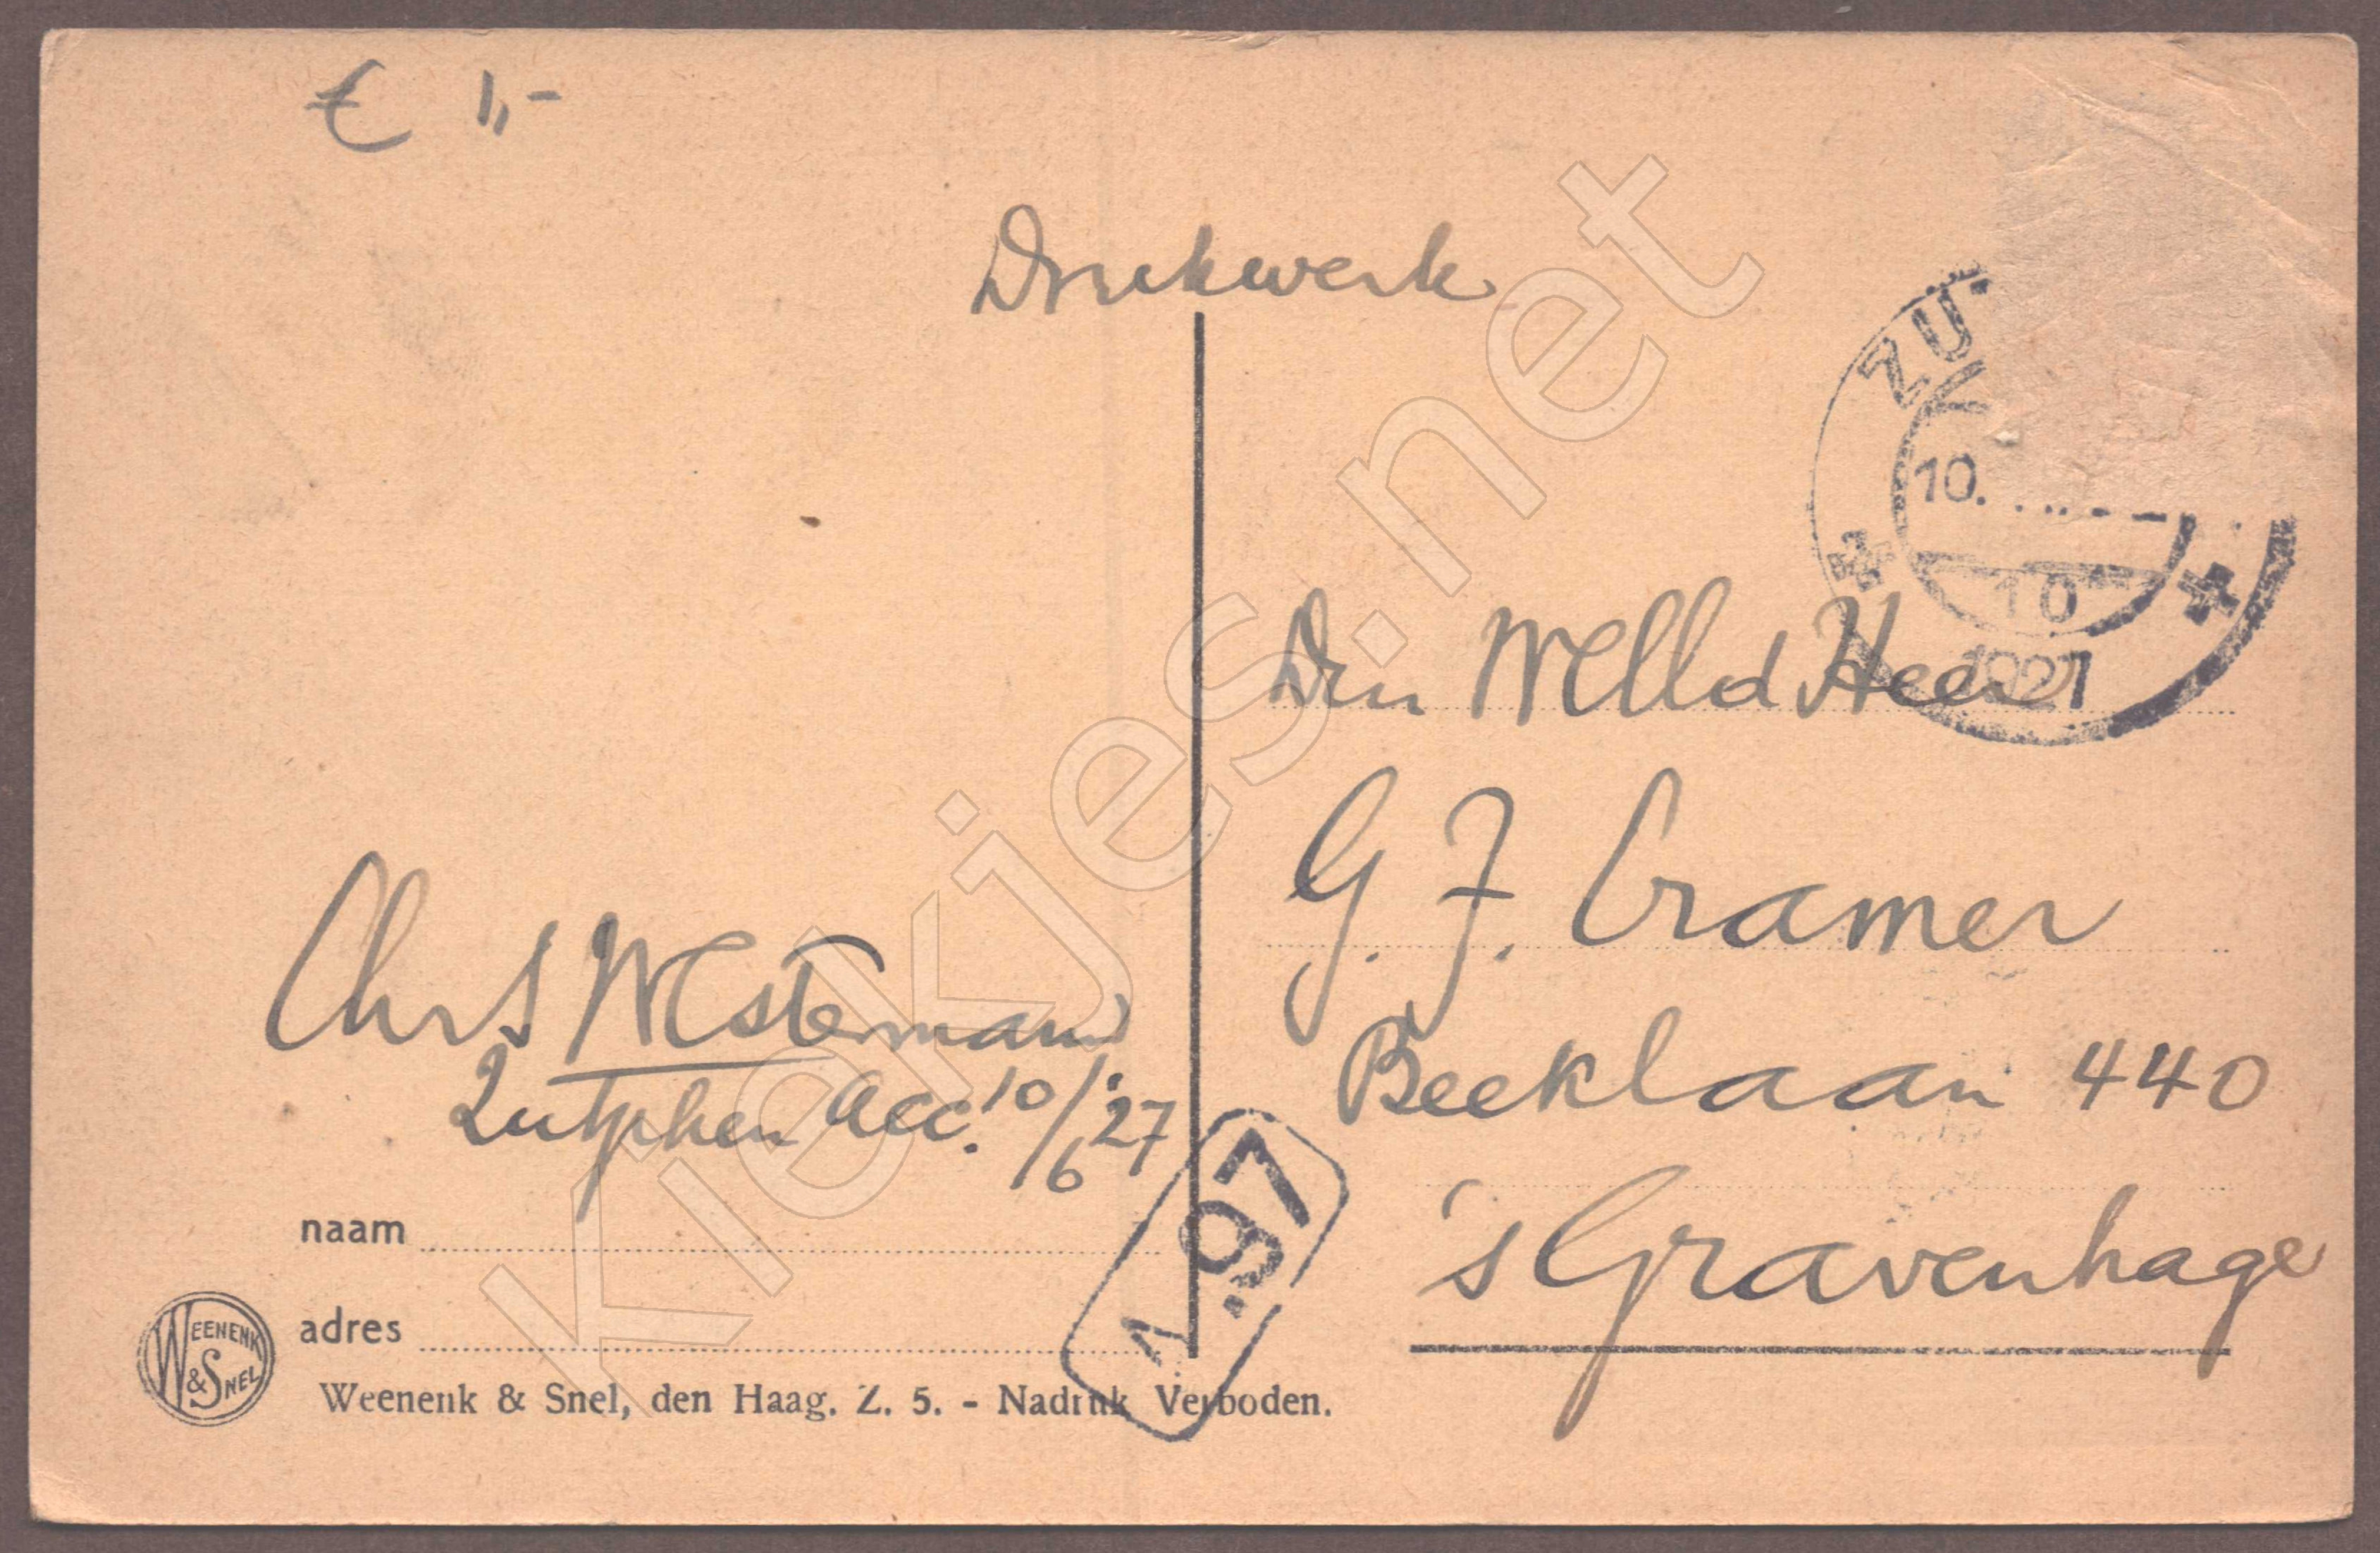 € 1,-
Drukwerk
ZU
10.
10
1927
Den WEd Heer
G. J. Cramer
Beeklaan 440
's Gravenhage
Chr Westerman
Zutphen Acc. 10/6 '27
1.97
naam
adres
WEENENK & SNEL
Weenenk & Snel, den Haag. Z. 5. - Nadruk Verboden.
Kiekjes.net